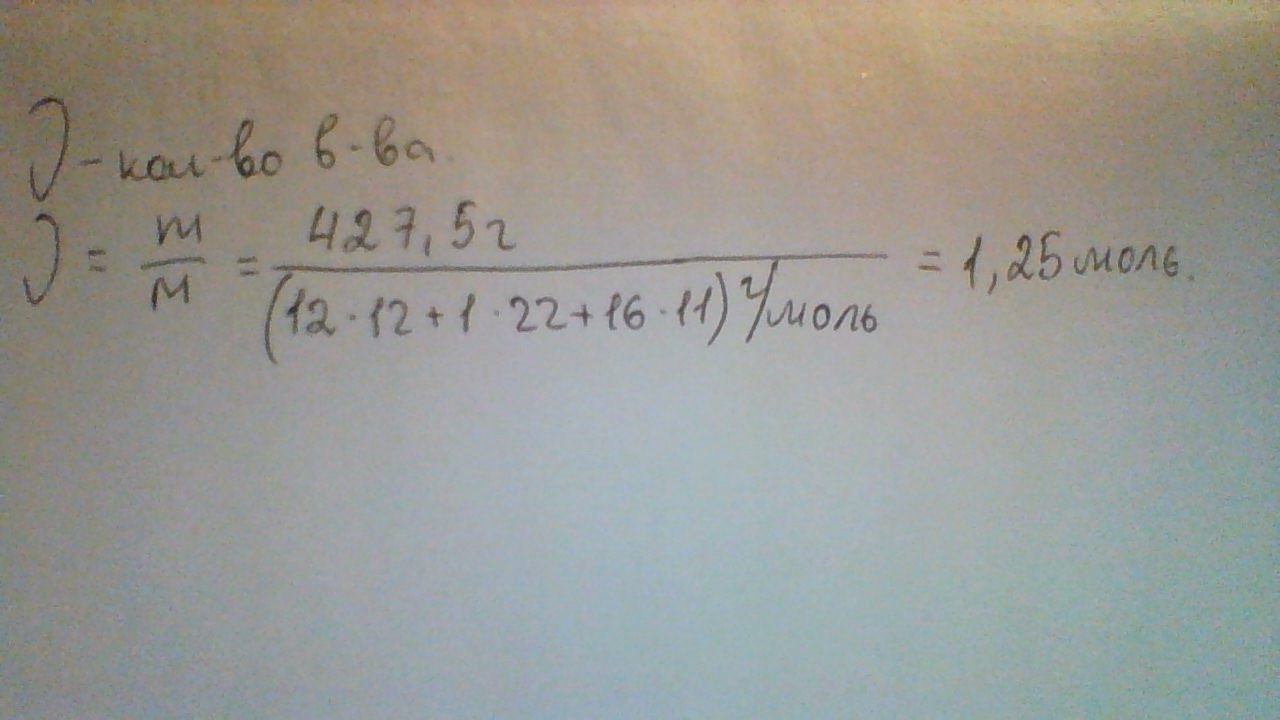 J - кол-во в-ва.
J = m/M = 427,5г/(12·12+1·22+16·11) г/моль = 1,25 моль.